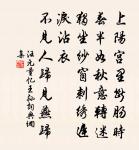 上陽宮里斷腸時
春半如秋意轉迷
獨坐紗窗刺繡遲
淚沾衣
不見人歸見燕歸
汪元量憶王孫詞典網
集